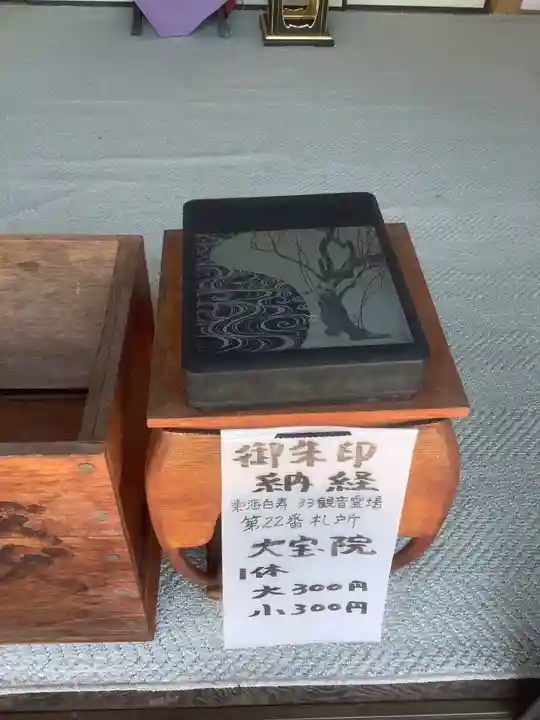 御朱印
納経
東海白寿 33観音霊場
第22番札所
大宝院
1体
大300円
小300円